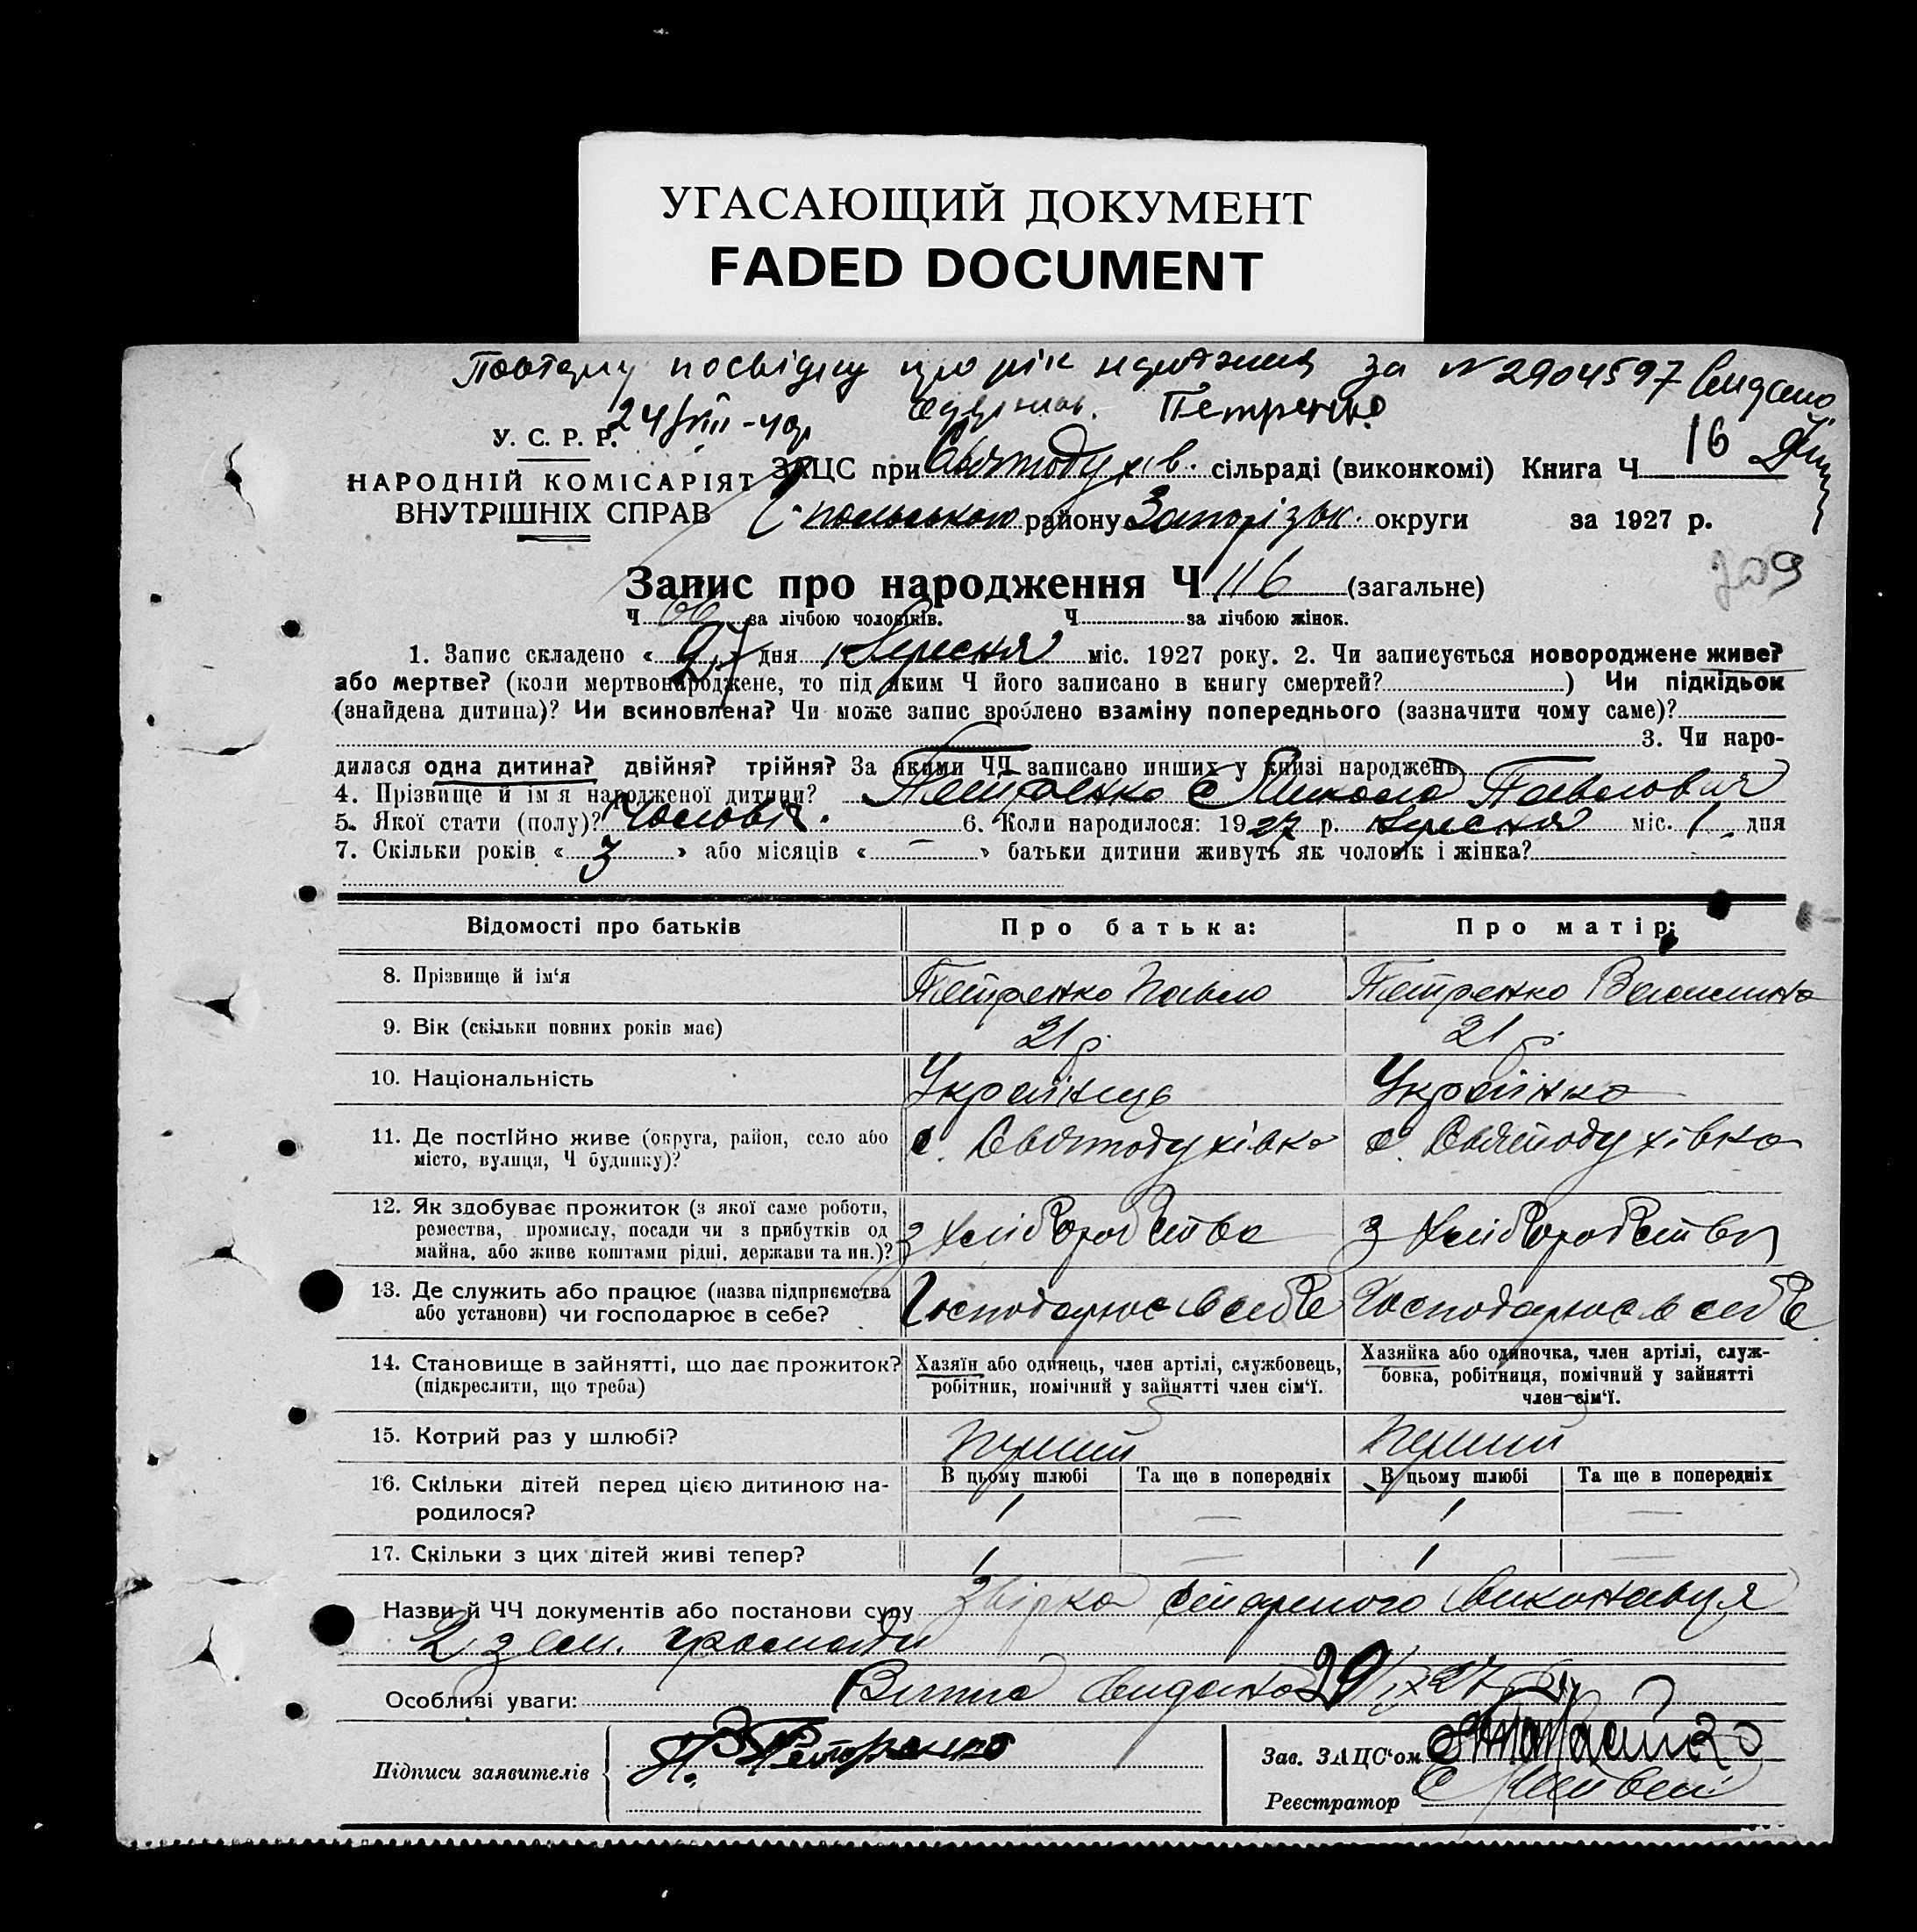 УГАСАЮЩИЙ ДОКУМЕНТ
FADED DOCUMENT
посвідку про рік народження за № 2904597 Видано
24/VIII-40р Петренко
У. С. Р. Р.
НАРОДНІЙ КОМІСАРІЯТ
ВНУТРІШНІХ СПРАВ
ЗАЦС при Святодухів. сільраді (виконкомі) Книга Ч 16
району Запорізьк. округи за 1927 р.
209
Запис про народження Ч 116 (загальне)
Ч 66 за лічбою чоловіків. Ч за лічбою жінок.
1. Запис складено « 27 » дня Вересня міс. 1927 року. 2. Чи записується новороджене живе?
або мертве? (коли мертвонароджене, то під яким Ч його записано в книгу смертей? ) Чи підкідьок
(знайдена дитина)? Чи всиновлена? Чи може запис зроблено взаміну попереднього (зазначити чому саме)?
3. Чи наро-
дилася одна дитина? двійня? трійня? За якими ЧЧ записано инших у книзі народжень
4. Прізвище й ім'я народженої дитини? Петренко Микола Павлович
5. Якої стати (полу)? Чоловіч. 6. Коли народилося: 1927 р. Вересня міс. 1 дня
7. Скільки років « 3 » або місяців « — » батьки дитини живуть як чоловік і жінка?
Відомості про батьків Про батька: Про матір:
8. Прізвище й ім'я Петренко Павло Петренко Василина
9. Вік (скільки повних років має) 21 р. 21 р.
10. Національність Українець Українка
11. Де постійно живе (округа, район, село або с. Святодухівка с. Святодухівка
місто, вулиця, Ч будинку)?
12. Як здобуває прожиток (з якої саме роботи,
ремества, промислу, посади чи з прибутків од з хліборобства з хліборобства
майна, або живе коштами рідні, держави та ин.)?
13. Де служить або працює (назва підприємства Господарює в себе Господарює в себе
або установи) чи господарює в себе?
14. Становище в зайнятті, що дає прожиток? Хазяїн або одинець, член артілі, службовець, Хазяйка або одиночка, член артілі, служ-
(підкреслити, що треба) робітник, помічний у зайнятті член сім'ї. бовка, робітниця, помічний у зайнятті
член сім'ї.
15. Котрий раз у шлюбі? Перший Перший
В цьому шлюбі Та ще в попередніх В цьому шлюбі Та ще в попередніх
16. Скільки дітей перед цією дитиною на- 1 — 1 —
родилося?
17. Скільки з цих дітей живі тепер? 1 — 1 —
Назви й ЧЧ документів або постанови суду Звірка виконавця
2 зем. громади
Особливі уваги: Видано 29/IX 27 р.
Підписи заявителів П. Петренко Зав. ЗАЦС'ом
Реєстратор